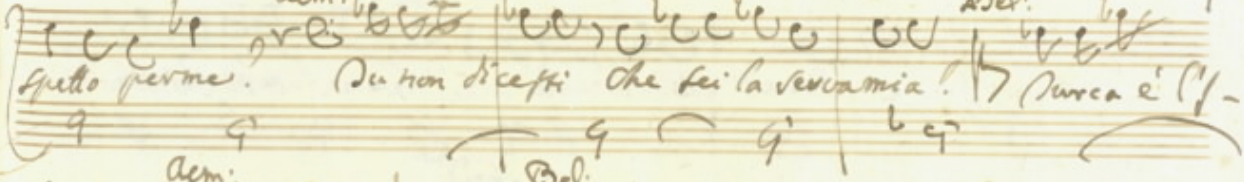 Asel:
spetto per me! Tu non dicesti che sei la serva mia!
Acm: Bel: